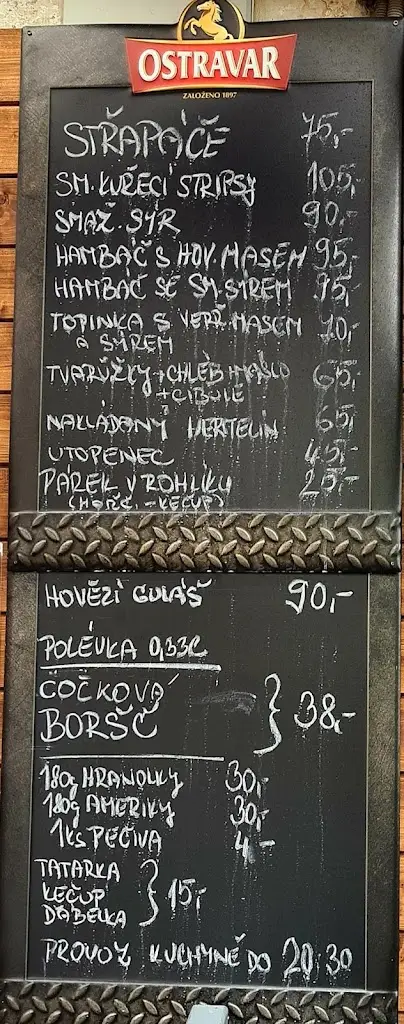 OSTRAVAR
ZALOŽENO 1897
STŘAPAČE 75,-
SM. KUŘECÍ STRIPSY 105,-
SMAŽ. SÝR 90,-
HAMBÁČ S HOV. MASEM 95,-
HAMBÁČ SE SM. SÝREM 95,-
TOPINKA S VEPŘ. MASEM 70,-
A SÝREM
TVARŮŽKY + CHLÉB MÁSLO 65,-
+ CIBULE
NAKLÁDANÝ HERMELÍN 65,-
UTOPENEC 45,-
PÁREK V ROHLÍKU 25,-
(HOŘČ. - KEČUP)
HOVĚZÍ GULÁŠ 90,-
POLÉVKA 0,33L
ČOČKOVÁ
BORŠČ } 38,-
180g HRANOLKY 30,-
180g AMERIKY 30,-
1ks PEČIVA 4,-
TATARKA
KEČUP } 15,-
ĎÁBELKA
PROVOZ KUCHYNĚ DO 20:30